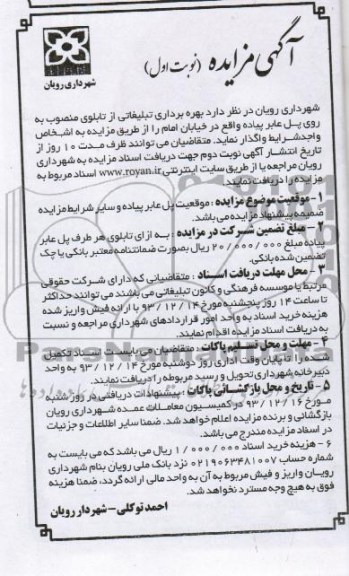 آگهی مزایده (نوبت اول)
شهرداری رویان
شهرداری رویان در نظر دارد بهره برداری تبلیغاتی از تابلوی منصوب به
روی پل عابر پیاده واقع در خیابان امام را از طریق مزایده به اشخاص
واجد شرایط واگذار نماید. متقاضیان می توانند ظرف مدت ۱۰ روز از
تاریخ انتشار آگهی نوبت دوم جهت دریافت اسناد مزایده به شهرداری
رویان مراجعه یا از طریق سایت اینترنتی www.royan.ir اسناد مربوط به
مزایده را دریافت نمایند.
۱- موقعیت موضوع مزایده : موقعیت پل عابر پیاده و سایر شرایط مزایده
ضمیمه پیشنهاد مزایده می باشد.
۲- مبلغ تضمین شرکت در مزایده : به ازای تابلوی هر طرف پل عابر
پیاده مبلغ ۲۰/۰۰۰/۰۰۰ ریال بصورت ضمانتنامه معتبر بانکی یا چک
تضمین شده بانکی.
۳- محل مهلت دریافت اسناد : متقاضیانی که دارای شرکت حقوقی
مرتبط یا موسسه فرهنگی و کانون تبلیغاتی می باشند می توانند حداکثر
تا ساعت ۱۴ روز پنجشنبه مورخ ۹۳/۱۲/۱۴ با ارائه فیش واریز شده
هزینه خرید اسناد به واحد امور قراردادهای شهرداری مراجعه و نسبت
به دریافت اسناد مزایده اقدام نمایند.
۴- مهلت و محل تسلیم پاکات : متقاضیان می بایست اسناد تکمیل
شده را تا پایان وقت اداری روز دوشنبه مورخ ۹۳/۱۲/۱۴ به واحد
دبیرخانه شهرداری تحویل و رسید مربوطه را دریافت نمایند.
۵- تاریخ و محل بازگشائی پاکات : پیشنهادات دریافتی در روز شنبه
مورخ ۹۳/۱۲/۱۶ در کمیسیون معاملات عمده شهرداری رویان
بازگشائی و برنده مزایده اعلام خواهد شد. ضمنا سایر اطلاعات و جزئیات
در اسناد مزایده مندرج می باشد.
۶- هزینه خرید اسناد ۱/۰۰۰/۰۰۰ ریال می باشد که می بایست به
شماره حساب ۰۲۱۹۰۶۳۴۸۱۰۰۷ نزد بانک ملی رویان بنام شهرداری
رویان واریز و فیش مربوط به آن به واحد مالی ارائه گردد، ضمنا هزینه
فوق به هیچ وجه مسترد نخواهد شد.
احمد توکلی - شهردار رویان